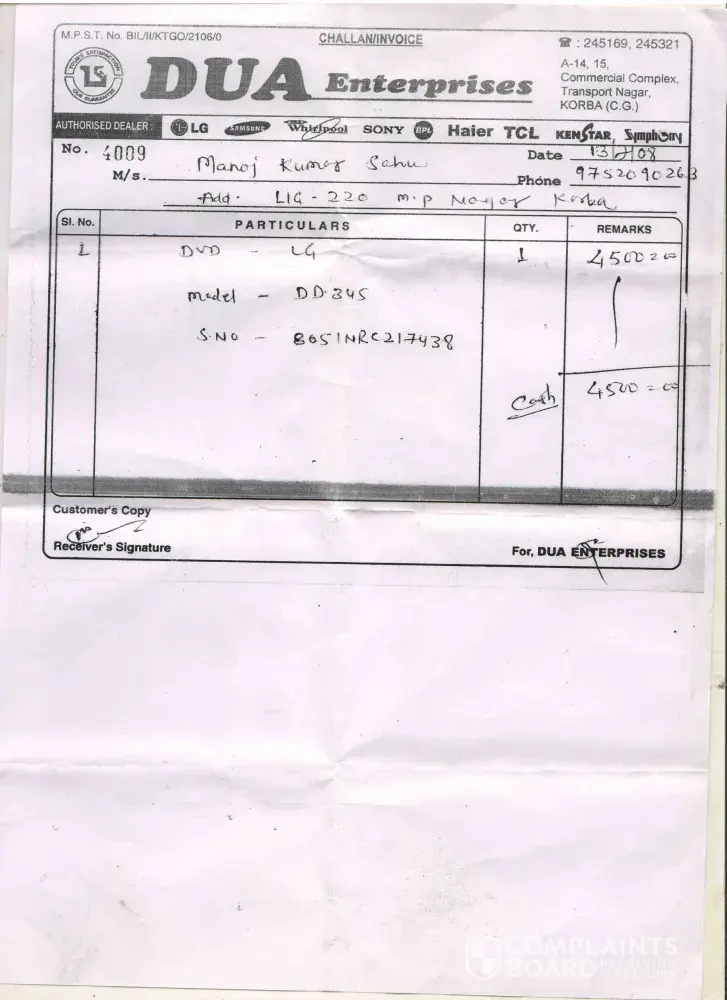 M.P.S.T. No. BIL/II/KTGO/2106/0
CHALLAN/INVOICE
☎ : 245169, 245321
DUA Enterprises
A-14, 15,
Commercial Complex,
Transport Nagar,
KORBA (C.G.)
AUTHORISED DEALER : LG SAMSUNG Whirlpool SONY BPL Haier TCL KENSTAR, Symphony
No. 4009
Date 13/ /08
M/s. Manoj Kumar Sahu
Phone 9752090263
Add. LIG - 220 M.P Nagar Korba
Sl. No. PARTICULARS QTY. REMARKS
1 DVD - LG 1 4500=00
Model - DD.345
S.NO - 805INRC217438
Cash 4500=00
Customer's Copy
Receiver's Signature
For, DUA ENTERPRISES
COMPLAINTS
BOARD RESOLVING
SINCE 2004